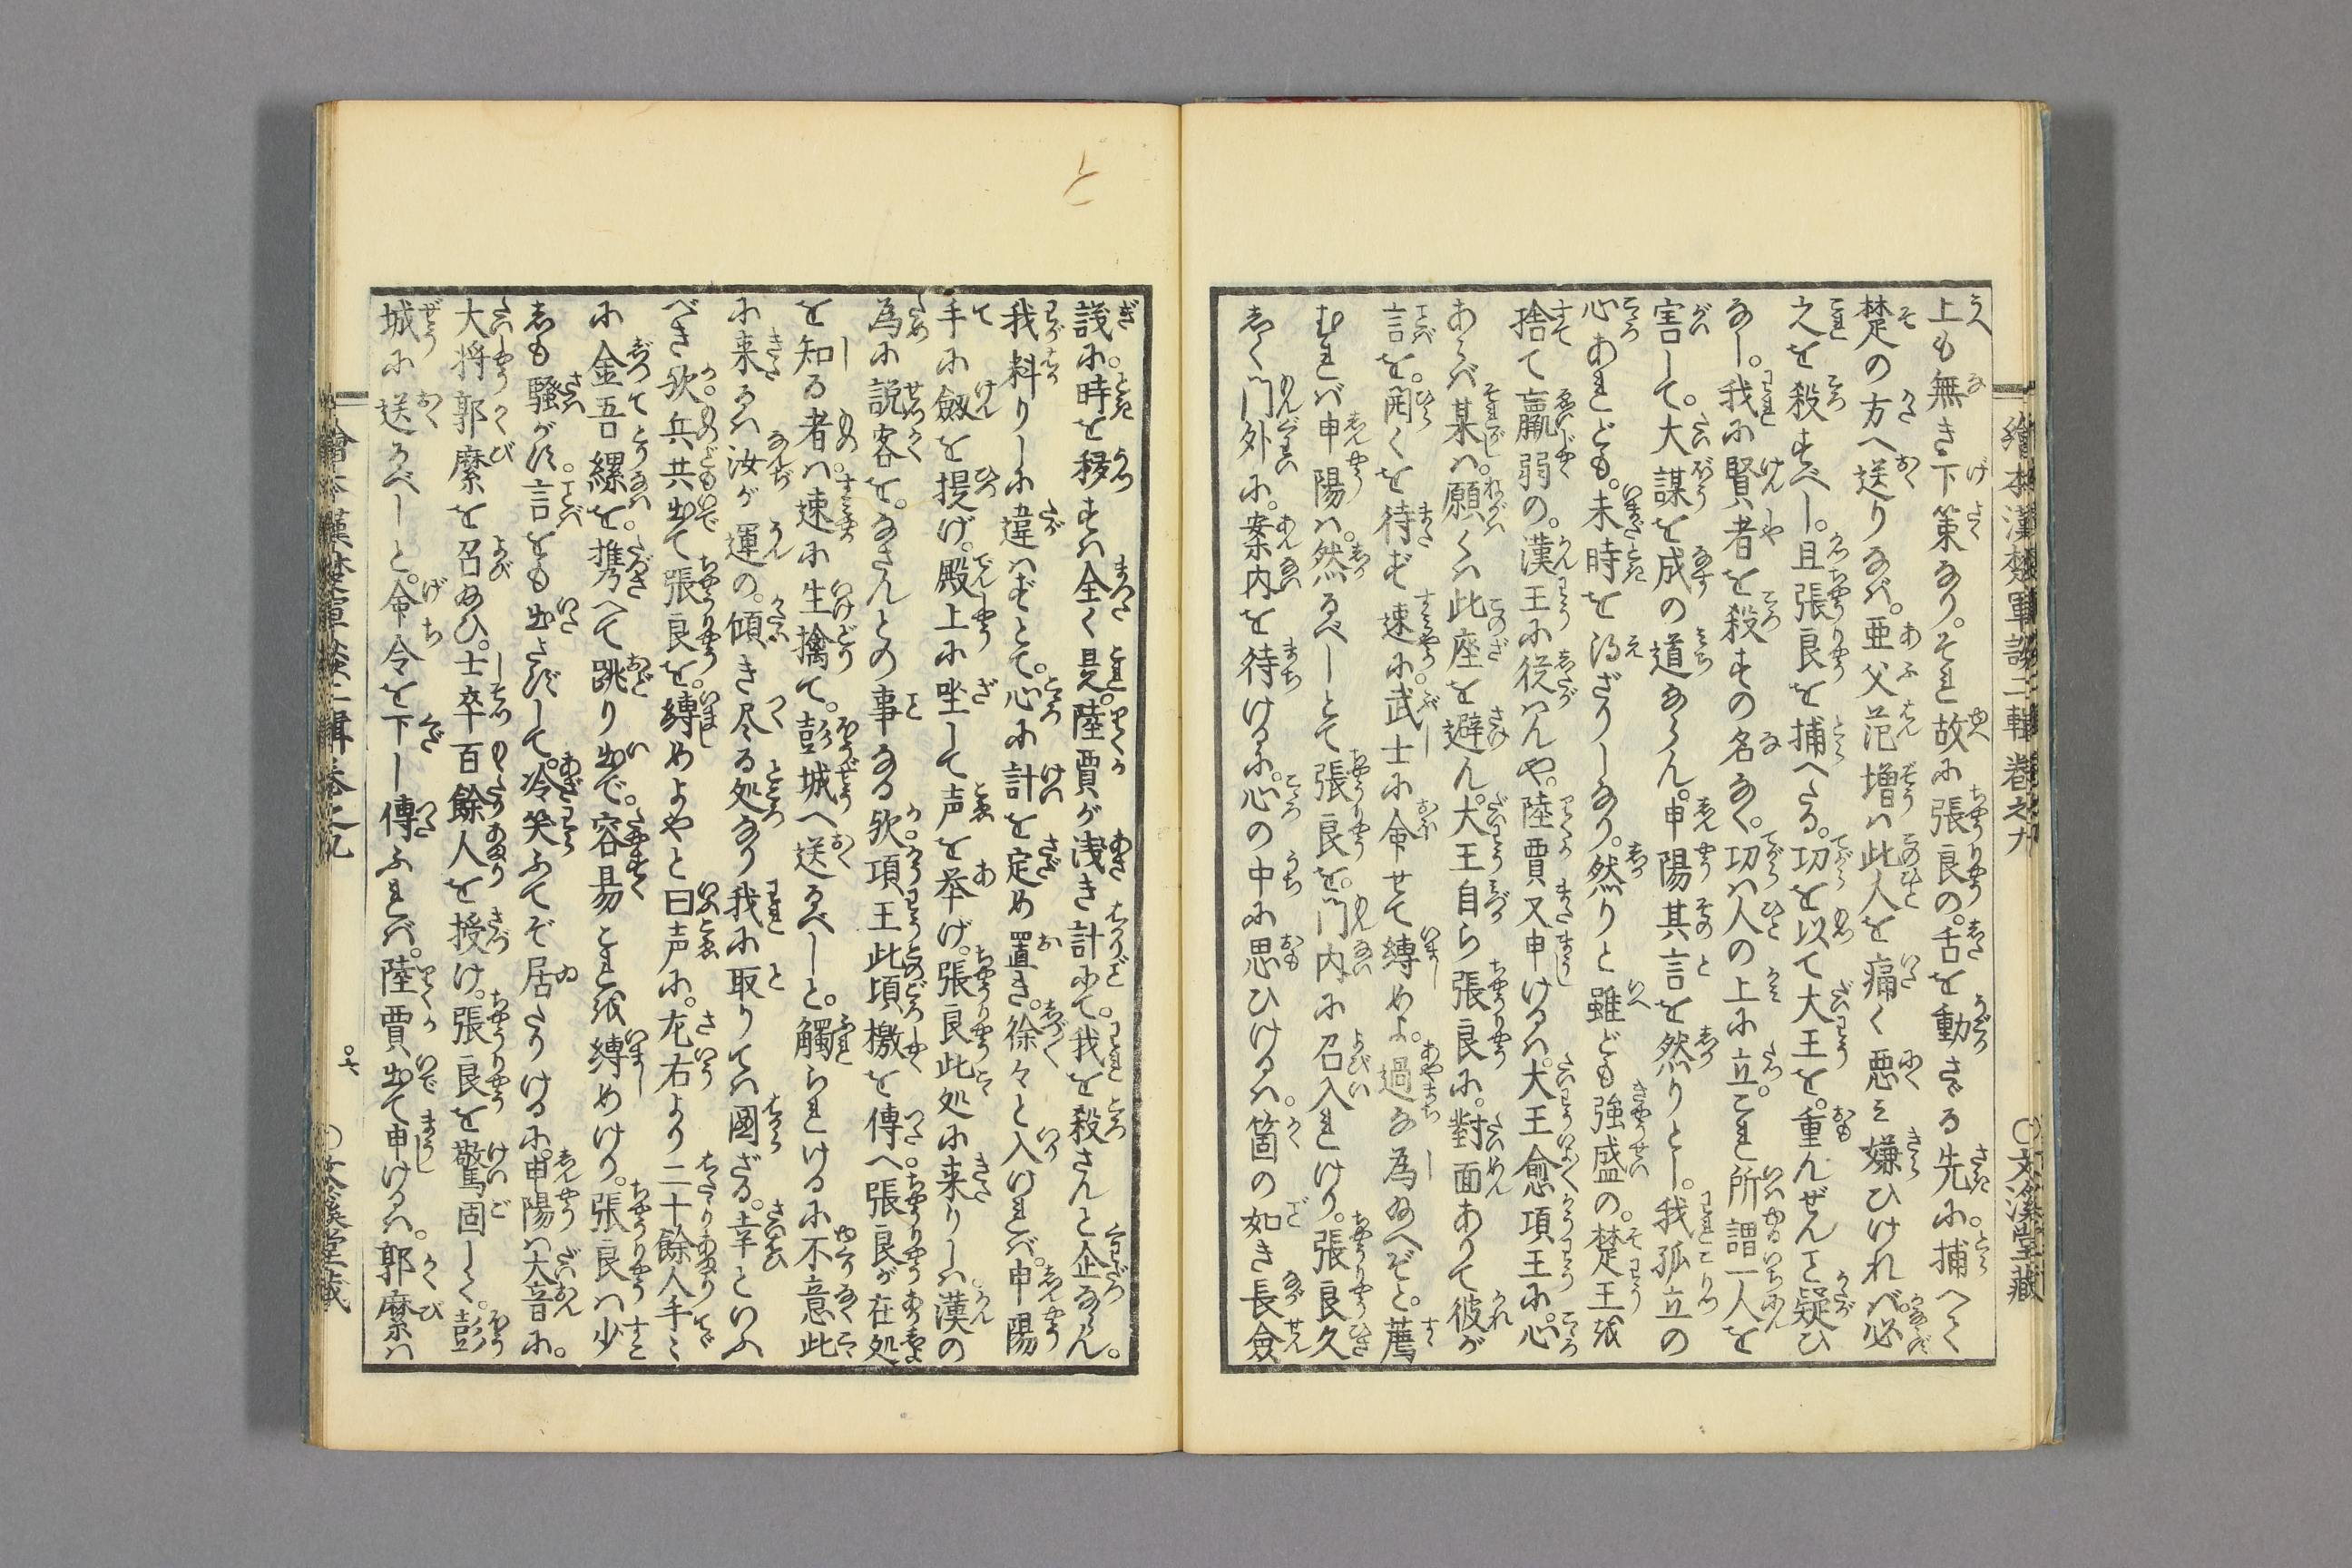 繪本漢楚軍談二輯卷之九
○文溪堂藏
上も無き下策なり。それ故に張良の。舌を動さゞる先に。捕へて
楚の方へ送りなば。亜父范増は此人を痛く悪み嫌ひければ。必
之を殺すべし。且張良を捕へたる。功を以て大王を。重んぜんと疑ひ
なし。我に賢者を殺すの名なく。功は人の上に立。これ所謂一人を
害して。大謀を成の道ならん。申陽其言を然りとし。我孤立の
心あれども。未時を得ざりしなり。然りと雖ども強盛の。楚王を
捨て羸弱の。漢王に従はんや。陸賈又申けるは。大王愈項王に。心
あらば某は。願くは此座を避ん。大王自ら張良に。對面ありて彼が
言を。開くを待ず速に。武士に命せて縛めよ。過な為給へぞと。薦
むれば申陽は。然るべしとて張良を。門内に召入れけり。張良久
しく門外に。案内を待けるに。心の中に思ひけるは。箇の如き長僉
議に。時を移すは全く是。陸賈が浅き計にて。我を殺さんと企ならん。
我料りしに違はずとて。心に計を定め置き。徐々と入ければ。申陽
手に劔を提げ。殿上に坐して声を挙げ。張良此処に来りしは。漢の
為に説客を。なさんとの事なる欤。項王此頃檄を傳へ。張良が在処
を知る者は。速に生擒て。彭城へ送るべしと。觸られけるに不意此
に来るは汝が運の。傾き尽る処なり我に取りては國ざる。幸といふ
べき欤。兵共出て張良を。縛めよやと曰声に。左右より二十餘人手ミ
に金吾縲を。携へて跳り出で。容昜これを縛めけり。張良は少
しも騒がず。言をも出さずして。冷笑ふてぞ居たりけるに。申陽は大音に。
大将郭縻を召給ひ。士卒百餘人を授け。張良を驚固して。彭
城に送るべしと。命令を下し傳ふれば。陸賈出て申けるは。郭縻は
繪本漢楚軍談二輯卷之九
○六
○文溪堂藏